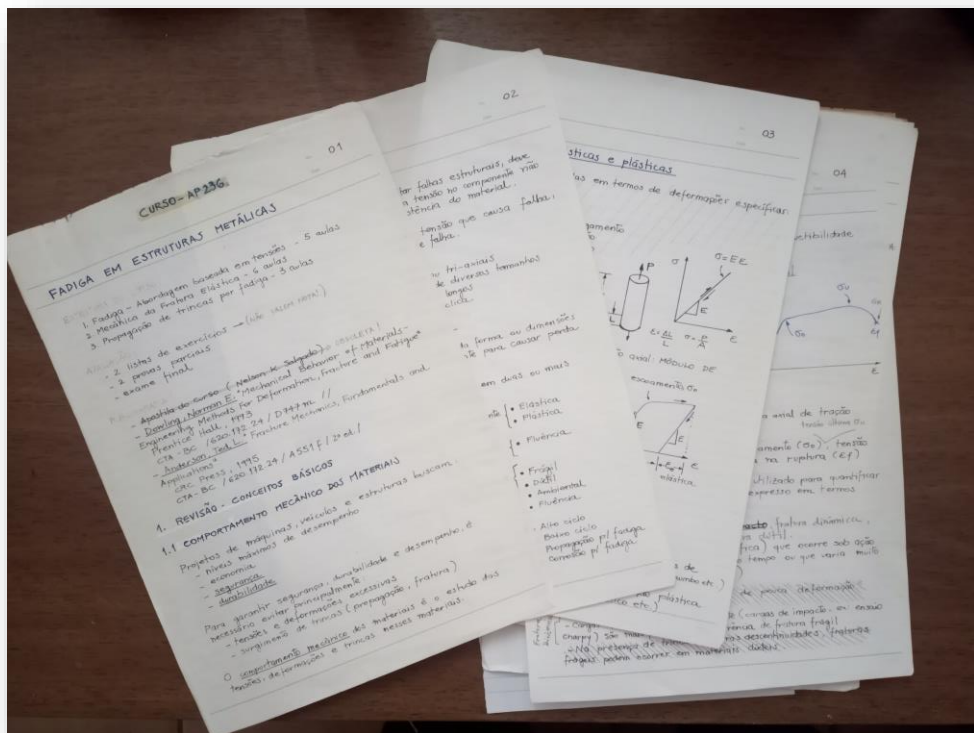 01
CURSO - AP236
FADIGA EM ESTRUTURAS METÁLICAS
1. Fadiga - Abordagem baseada em tensões - 5 aulas
2. Mecânica da Fratura Elástica - 6 aulas
3. Propagação de trincas por fadiga - 3 aulas
- 2 listas de exercícios → (NÃO VALEM NOTA!)
- 2 provas parciais
- exame final
- Apostila do curso (Nelson de Salgado) OBSOLETA!
- Dowling, Norman E. "Mechanical Behavior of Materials -
Engineering Methods For Deformation, Fracture and Fatigue"
Prentice Hall, 1993
CTA - BC /620.172.24 / D747m //
- Anderson Ted L. "Fracture Mechanics, Fundamentals and
Applications"
CRC Press, 1995
CTA - BC /620.172.24 / A551f / 2ª ed /
1. REVISÃO - CONCEITOS BÁSICOS
1.1 COMPORTAMENTO MECÂNICO DOS MATERIAIS
Projetos de máquinas, veículos e estruturas buscam
- níveis máximos de desempenho
- economia
- segurança
- durabilidade
Para garantir segurança, durabilidade e desempenho, é
necessário evitar principalmente
- tensões e deformações excessivas
- surgimento de trincas (propagação, fratura)
O comportamento mecânico dos materiais é o estudo das
tensões, deformações e trincas nesses materiais.
02
tar falhas estruturais, deve
a tensão no componente não
stência do material.
tensão que causa falha.
e falha.
tri-axiais
de diversos tamanhos
longos
clica.
ta forma ou dimensões
te para causar perda
em duas ou mais
• Elástica
• Plástica
• Fluência
• Frágil
• Dútil
• Ambiental
• Fluência
- Alto ciclo
Baixo ciclo
Propagação p/ fadiga
Corrosão p/ fadiga
03
sticas e plásticas
as em termos de deformações específicas
gamento
P
σ
σ=Eε
E
ε=ΔL/L
σ=P/A
ε
o axial: MÓDULO DE
escoamento σo
E
elástica
s de
umbo etc.)
plástica
etc.)
04
etibilidade
σu
σo
εf
ε
a axial de tração
tensão última σu
amento (σo), tensão
na ruptura (εf)
utilizado para quantificar
expresso em termos
acto, fratura dinâmica,
dútil.
fica) que ocorre sob ação
tempo ou que varia muito
de pouca deformação
(cargas de impacto, ex: ensaio
charpy) são
rência de fratura frágil
- Na presença de trincas
ras descontinuidades, fraturas
frágeis podem ocorrer em materiais dúteis.